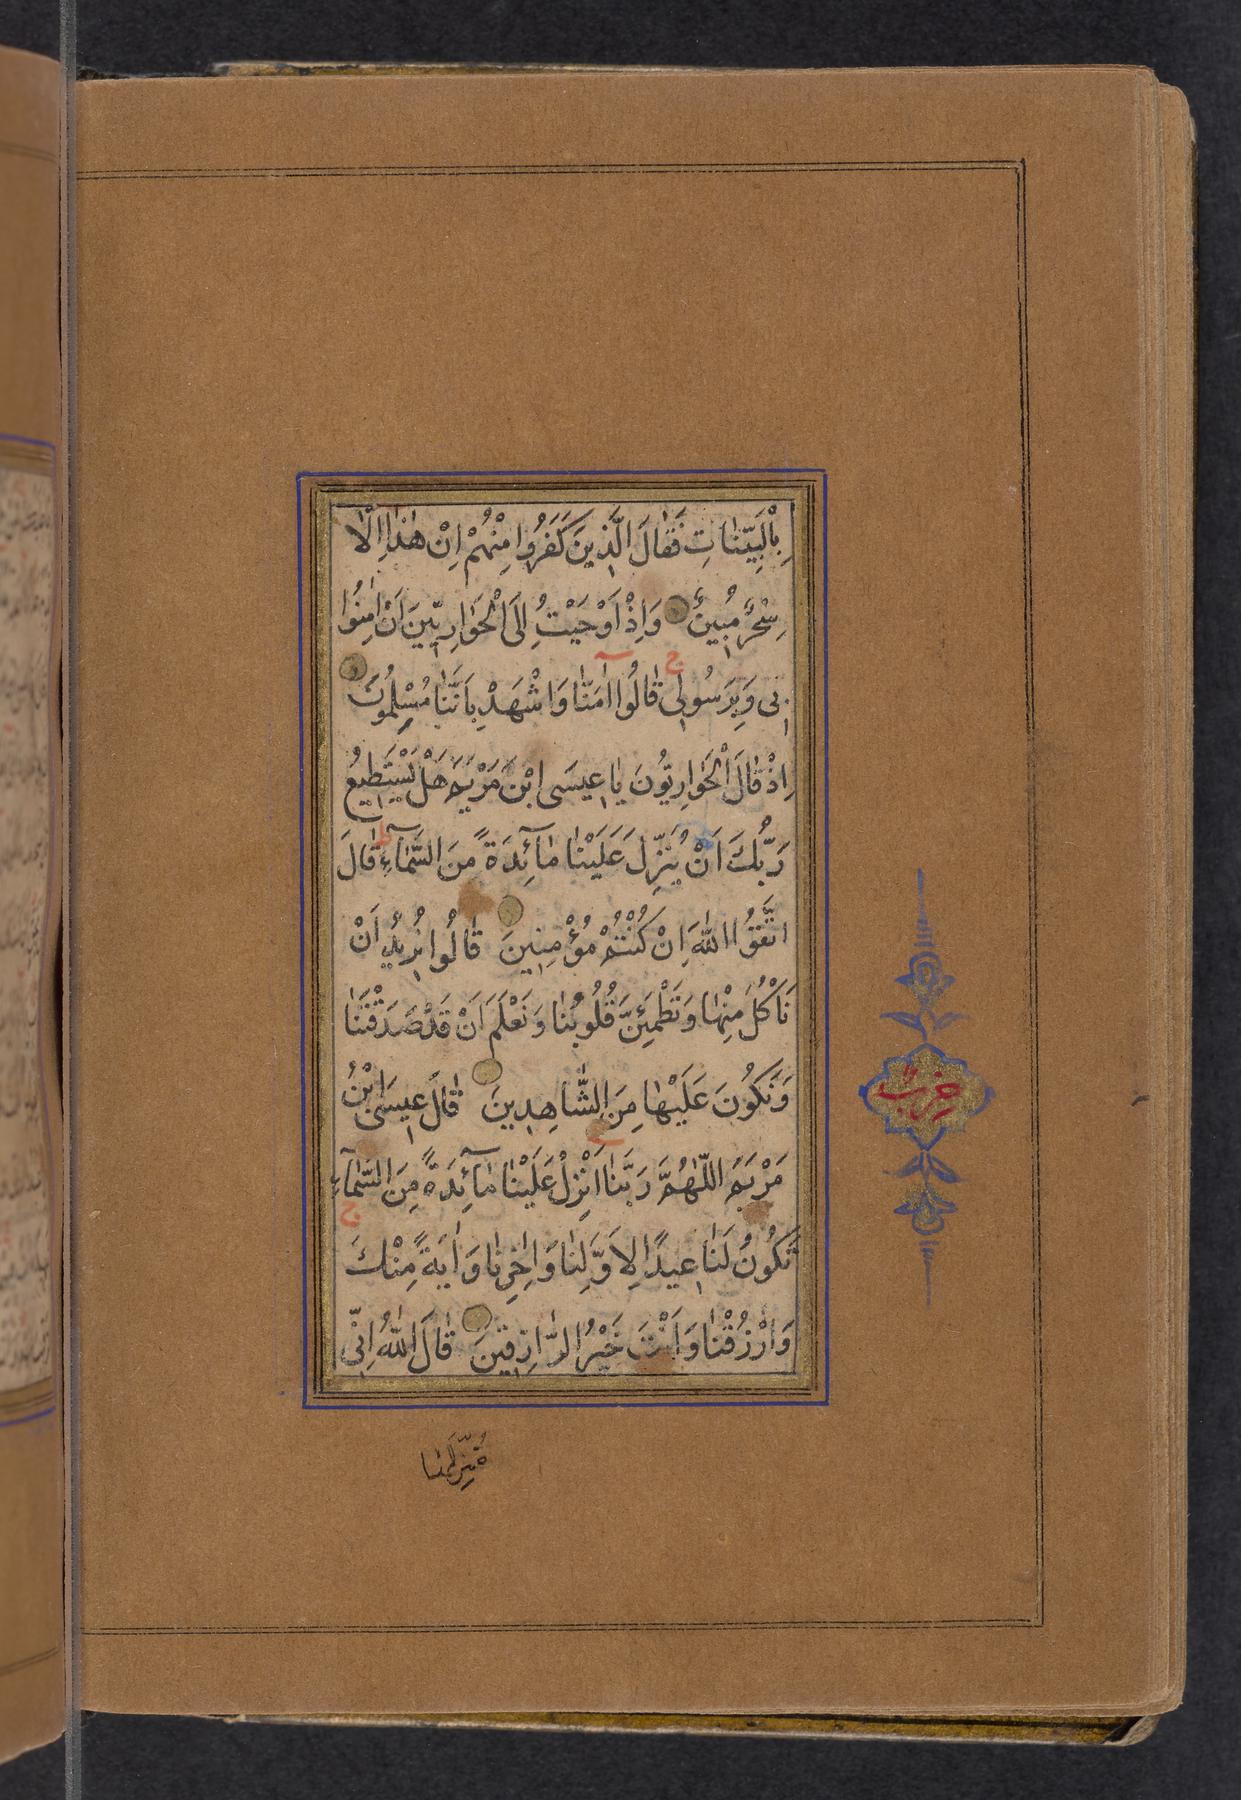 بِالْبَيِّنَاتِ فَقَالَ الَّذِينَ كَفَرُوا مِنْهُمْ اِنْ هٰذَا اِلَّا
سِحْرٌ مُبِينٌ وَاِذْ اَوْحَيْتُ اِلَى الْحَوَارِيِّينَ اَنْ اٰمِنُوا
بِى وَبِرَسُولِى ج قَالُوا اٰمَنَّا وَاشْهَدْ بِاَنَّنَا مُسْلِمُونَ
اِذْ قَالَ الْحَوَارِيُّونَ يَا عِيسَى ابْنَ مَرْيَمَ هَلْ يَسْتَطِيعُ
رَبُّكَ اَنْ يُنَزِّلَ عَلَيْنَا مَآئِدَةً مِنَ السَّمَآءِ ط قَالَ
اتَّقُوا اللّٰهَ اِنْ كُنْتُمْ مُؤْمِنِينَ قَالُوا نُرِيدُ اَنْ
نَاْكُلَ مِنْهَا وَتَطْمَئِنَّ قُلُوبُنَا وَنَعْلَمَ اَنْ قَدْ صَدَقْتَنَا
وَنَكُونَ عَلَيْهَا مِنَ الشَّاهِدِينَ قَالَ عِيسَى ابْنُ
مَرْيَمَ اللّٰهُمَّ رَبَّنَا اَنْزِلْ عَلَيْنَا مَآئِدَةً مِنَ السَّمَآءِ
تَكُونُ لَنَا عِيدًا لِاَوَّلِنَا وَاٰخِرِنَا وَاٰيَةً مِنْكَ ج
وَارْزُقْنَا وَاَنْتَ خَيْرُ الرَّازِقِينَ قَالَ اللّٰهُ اِنِّى
مُنَزِّلُهَا
حزب